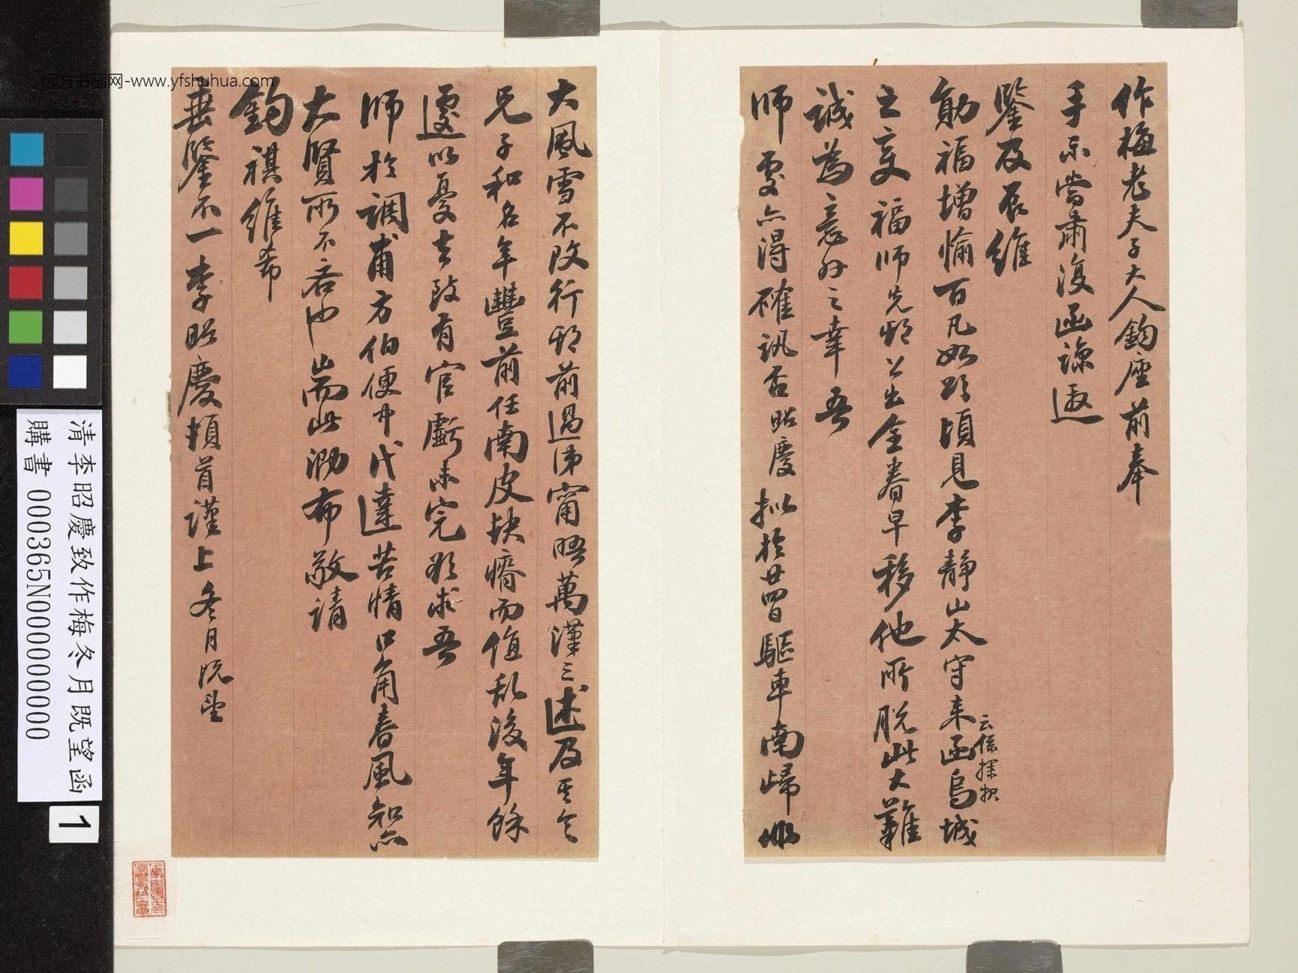 作梅老夫子大人鈞座前奉
手示當肅復函諒邀
鑒及辰維
勛福增愉百凡如頌頃見李靜山太守來函烏城
云係探報
之變福師先期公出全眷早移他所脫此大難
誠為意外之幸吾
師處亦得確訊否昭慶擬於廿四日驅車南歸俶
大風雪不改行期前過沛甯晤萬漢三述及其令
兄子和名年豐前任南皮缺瘠而值亂後年餘
遽以憂去致有官虧未完欲求吾
師於調甫方伯便中代達苦情口角春風知亦
大賢所不吝也耑此泐布敬請
鈞祺維希
垂鑒不一李昭慶頓首謹上冬月既望
远方书画网-www.yfshuhua.com
清李昭慶致作梅冬月既望函
購書 000365N000000000
1